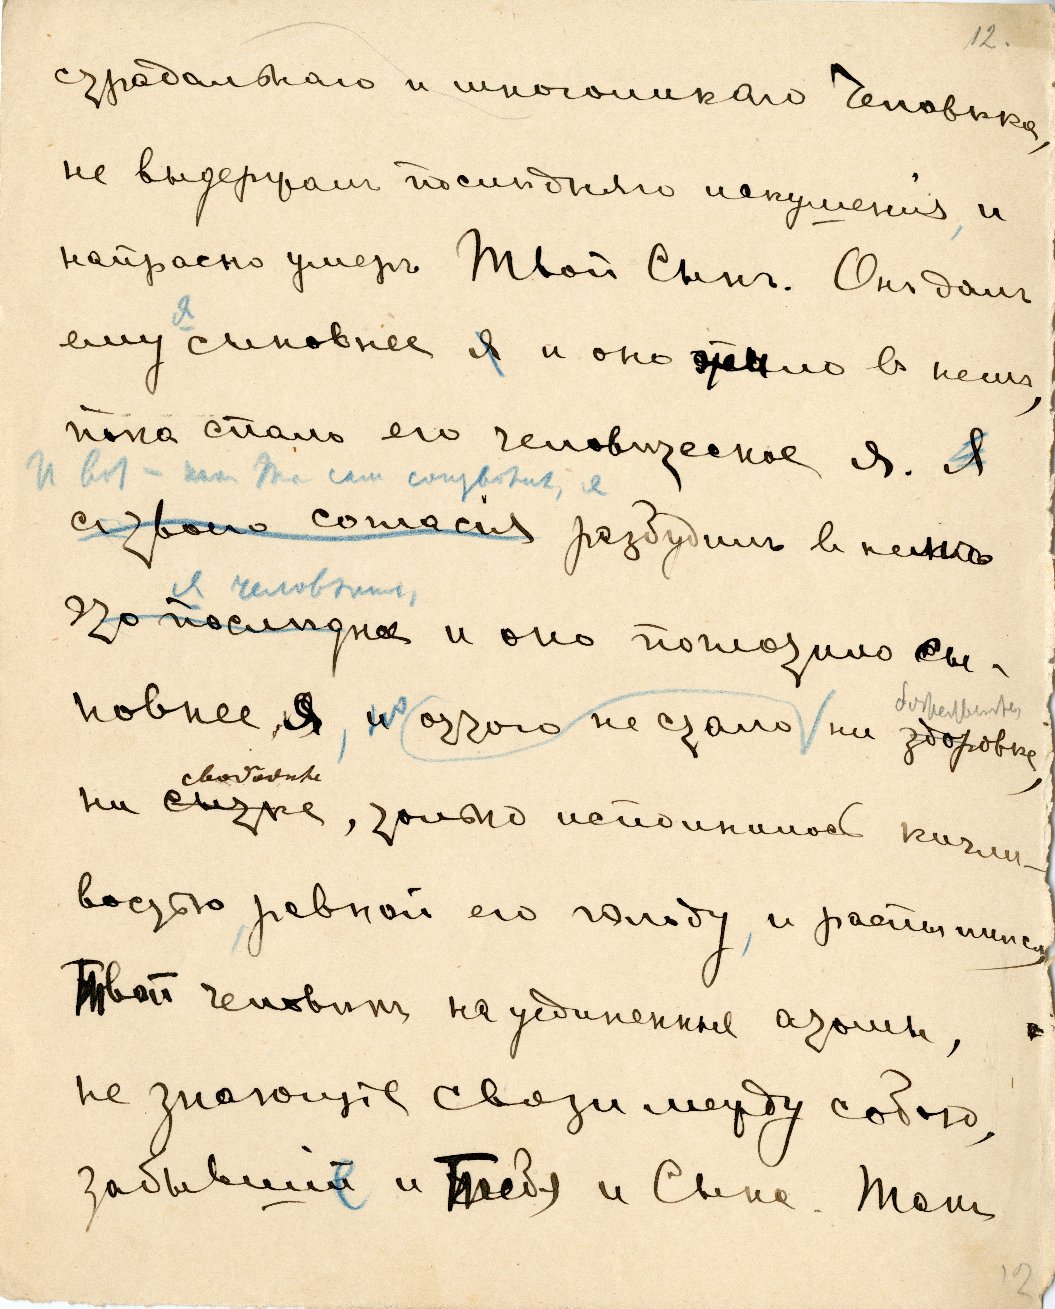 12.
страдальнаго и многоликаго Человѣка,
не выдержалъ послѣдняго искушенія, и
напрасно умеръ Твой Сынъ. Онъ далъ
я
ему сыновнее я и оно жило въ немъ,
пока спало его человѣческое я. Я
И вот – какъ Ты самъ соизволилъ, я
съ твоего согласія разбудилъ въ немъ
я человѣка,
это послѣднее и оно поглотило сы-
новнее я, и но оттого не стало ни здоровѣе,
божественнѣе
свободнѣе
ни сытѣе, только исполнилось кичли-
востью, равной его голоду, и распылился
Твой человѣкъ на уединенные атомы,
не знающіе связи между собою,
забывшій и Тебя и Сына. Такъ
12